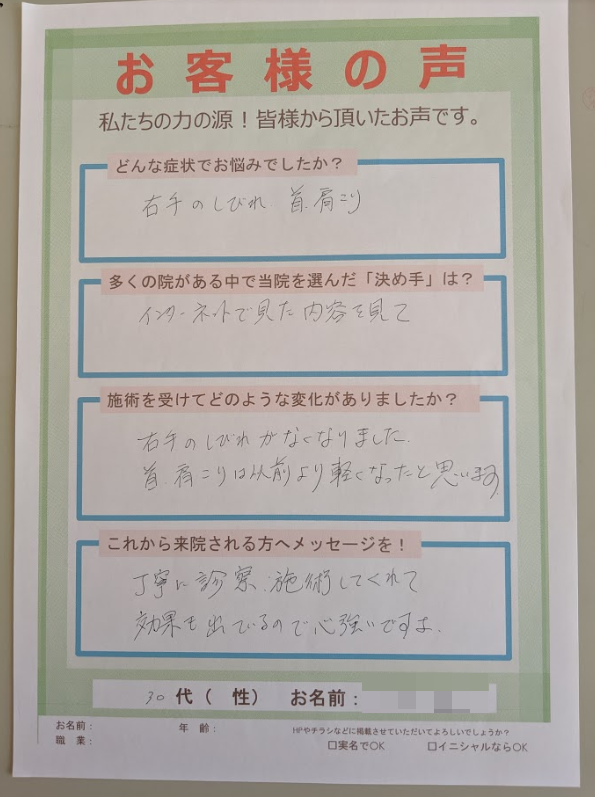 お客様の声
私たちの力の源！皆様から頂いたお声です。
どんな症状でお悩みでしたか？
右手のしびれ、首、肩こり
多くの院がある中で当院を選んだ「決め手」は？
インターネットで見た内容を見て
施術を受けてどのような変化がありましたか？
右手のしびれがなくなりました。
首、肩こりは以前より軽くなったと思います。
これから来院される方へメッセージを！
丁寧に診察、施術してくれて
効果も出ているので心強いですよ。
30代（　性）　お名前：
お名前：　年齢：
職業：
HPやチラシなどに掲載させていただいてよろしいでしょうか？
□実名でOK　□イニシャルならOK